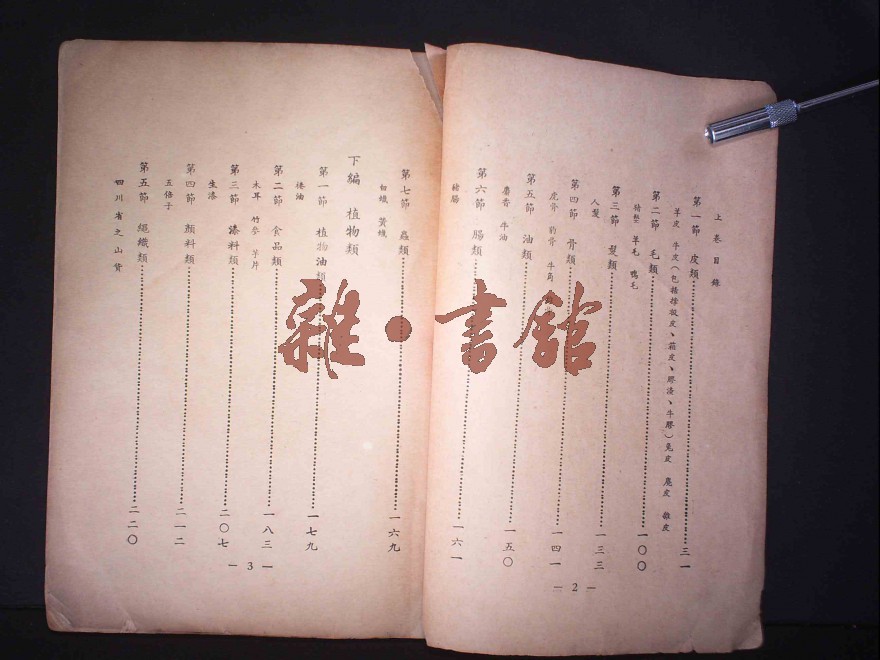 上卷目錄
第一節 皮類 三一
羊皮 牛皮(包括 皮、箱皮、膠渣、牛膠)兔皮 麂皮 雜皮
第二節 毛類 一〇〇
豬鬃 羊毛 鴨毛
第三節 髮類 一三三
人髮
第四節 骨類 一四一
虎骨 豹骨 牛角
第五節 油類 一五〇
麝香 牛油
第六節 腸類 一六一
豬腸
— 2 —
第七節 蟲類 一六九
白蠟 黃蠟
下編 植物類
第一節 植物油類 一七九
桊油
第二節 食品類 一八三
木耳 竹參 筍片
第三節 漆料類 二〇七
生漆
第四節 顏料類 二一二
五倍子
第五節 繩織類 二二〇
四川省之山貨
— 3 —
雜·書館